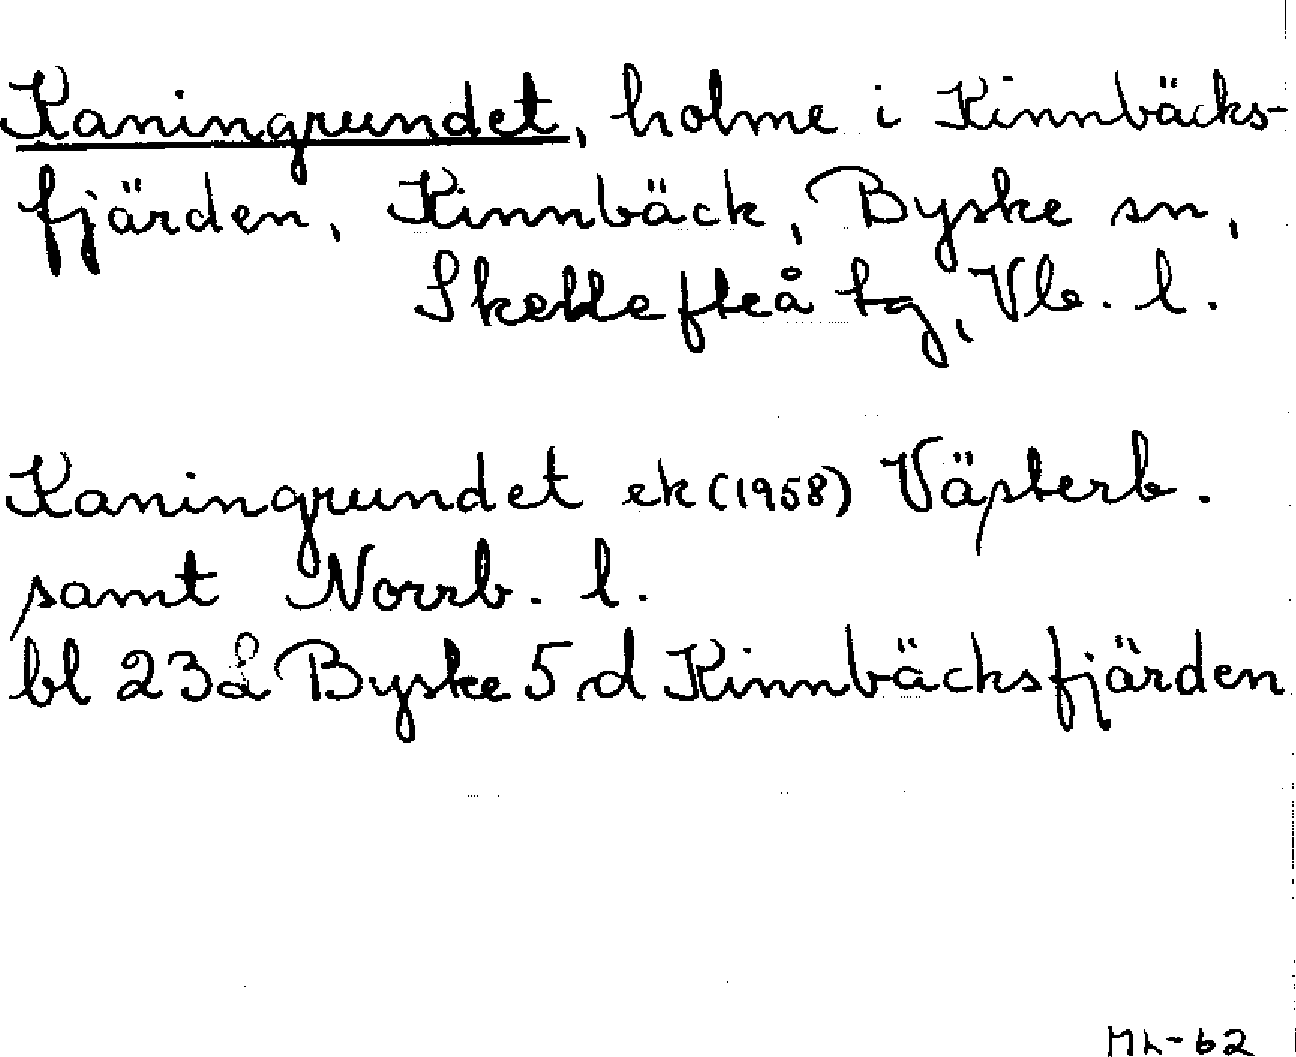 Kaningrundet, holme i Kinnbäcks-
fjärden, Kinnbäck, Byske sn,
Skellefteå tg, Vb. l.
Kaningrundet ek (1958) Västerb.
samt Norrb. l.
bl 23 L Byske 5 d Kinnbäcksfjärden